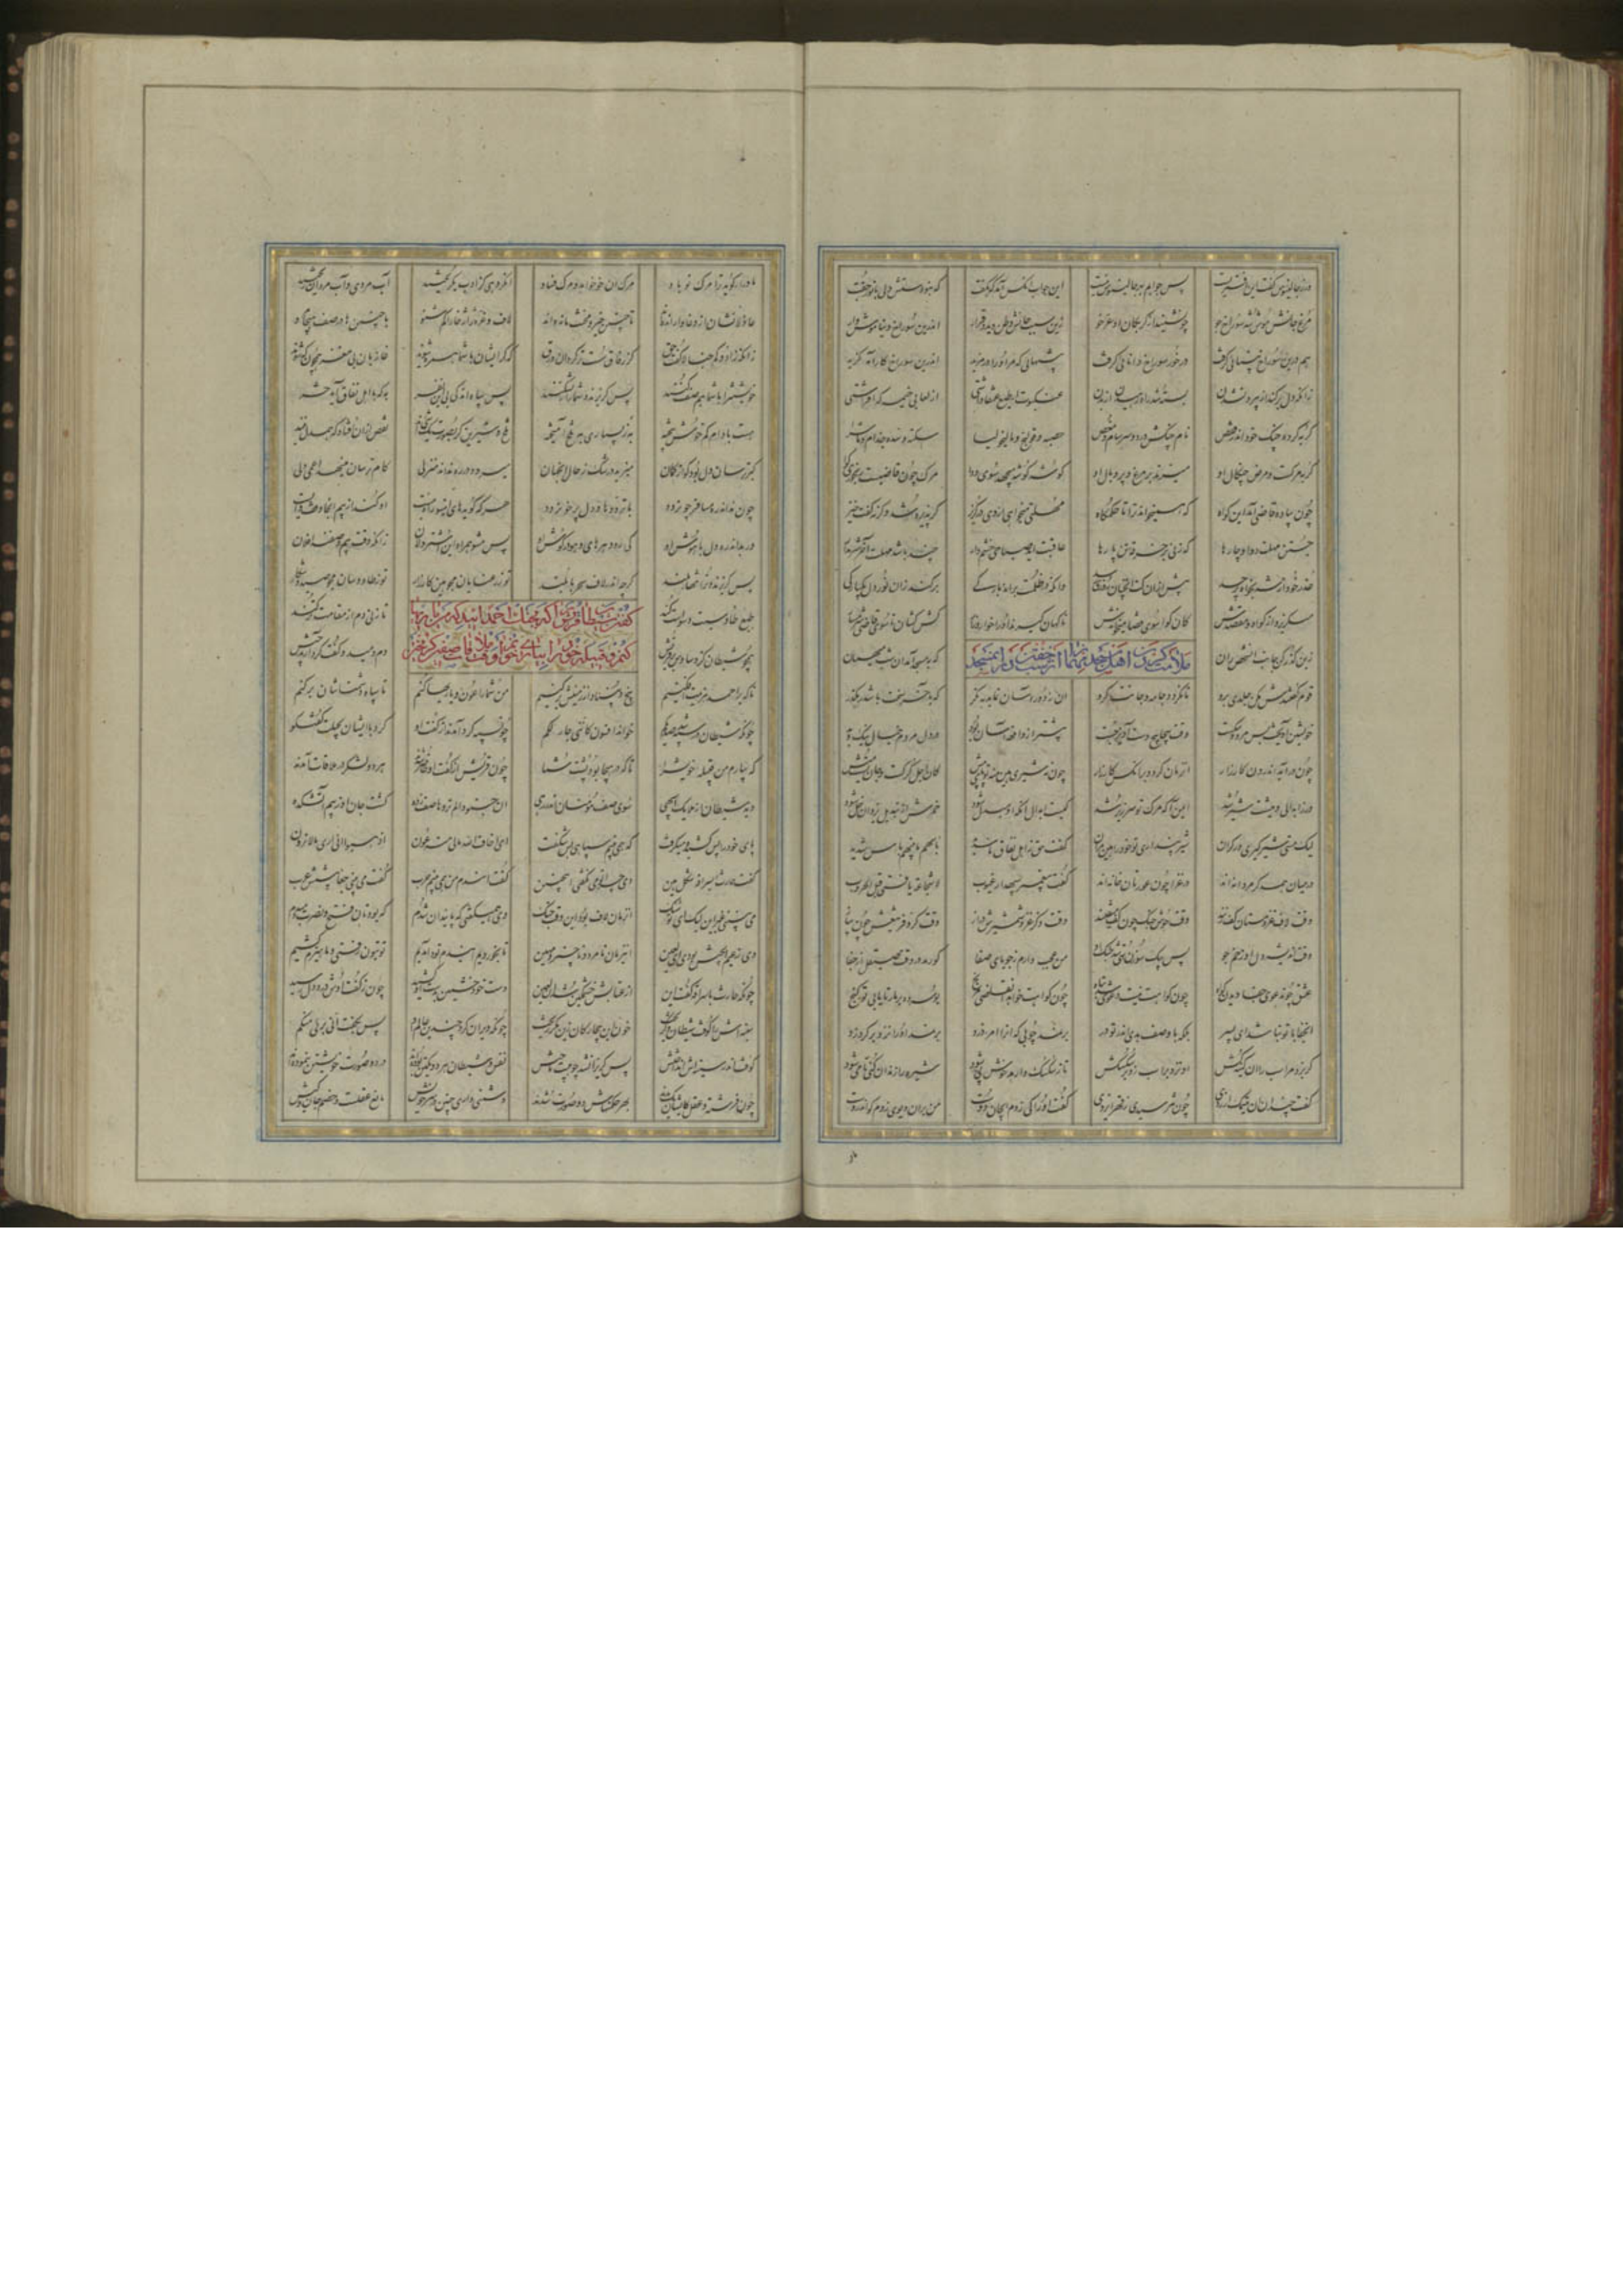 ور ز جالینوس گفت این افتریست پس جوابم بهر جالینوس نیست این جواب آنکس آمد کو بگفت که نبودستش دل با نور جفت
مرغ جانش موش شد سوراخ جو چون شنید از گربگان او عرجوا زین سبب جانش وطن دید و قرار اندرین سوراخ دنیا موش وار
هم درین سوراخ بنایی گرفت در خور سوراخ دانایی گرفت پیشهایی که مر او را در مزید اندرین سوراخ کار آید گزید
زانکه دل بر کند از بیرون شدن بسته شد راه رهیدن از بدن عنکبوت ار طبع عنقا داشتی از لعابی خیمه کی افراشتی
گربه کرده چنگ خود اندر قفص نام چنگش درد و سرسام و مغص حصبه و قولنج و مالیخولیا سکته و سل و جذام و ماشرا
گربه مرگست و مرض چنگال او میزند بر مرغ و پر و بال او گوشه گوشه میجهد سوی دوا مرگ چون قاضیست رنجوری گوا
چون پیاده قاضی آمد این گواه که همیخواند ترا تا حکمگاه مهلتی میخواهی از وی در گریز گر پذیرد شد و گرنه گفت خیز
جستن مهلت دوا و چارها که زنی بر خرقه تن پارها عاقبت آید صباحی خشم وار چند باشد مهلت آخر شرم دار
عذر خود از شه بخواه ای پر حسد پیش از آن کت آنچنان روزی رسد وانکه در ظلمت براند بارگی برکند زان نور دل یکبارگی
میگریزد از گواه و مقصدش کان گوا سوی قضا میخواندش
زین گذر کن جانب آن شخص ران که به مسجد آمد آن شب میهمان
ملامت کردن اهل مسجد مهمان را از شب خفتن در آن مسجد
قوم گفتندش مکن جلدی برو تا نگردد جامه و جانت گرو آن ز دور آسان نماید به نگر که به آخر سخت باشد رهگذر
خویشتن آویخت بس مرد و سکست وقت پیچاپیچ دست آویز جست پیشتر از واقعه آسان بود در دل مردم خیال نیک و بد
چون درآید اندرون کارزار آن زمان گردد بر آنکس کار زار چون نه شیری هین منه تو پای پیش کان اجل گرگست و جان تست میش
ور ز ابدالی و میشت شیر شد ایمن آ که مرگ تو سرزیر شد کیست ابدال آنکه او مبدل شود خمرش از تبدیل یزدان خل شود
لیک مستی شیرگیری وز گمان شیر پنداری تو خود را هین مران گفت حق ز اهل نفاق ناسدید باسهم ما بینهم باس شدید
در میان همدگر مردانه اند در غزا چون عورتان خانه اند گفت پیغمبر سپهدار غیوب لا شجاعة یا فتی قبل الحروب
وقت لاف غزو مستان کف زنند وقت جوش جنگ چون کف بیفنند وقت ذکر غزو شمشیرش دراز وقت کر و فر تیغش چون پیاز
وقت اندیشه دل او زخم جو پس بیک سوزن تهی شد خیک او من عجب دارم ز جویای صفا کو رمد در وقت صیقل از جفا
عشق چون دعوی جفا دیدن گواه چون گواهت نیست شد دعوی تباه چون گواهت خواهد این قاضی مرنج بوسه ده بر مار تا یابی تو گنج
آن جفا با تو نباشد ای پسر بلکه با وصف بدی اندر تو در بر نمد چوبی که آنرا مرد زد بر نمد آنرا نزد بر گرد زد
گر بزد مر اسب را آن کینه کش آن نزد بر اسب زد بر سکسکش تا ز سکسک وارهد خوش پی شود شیره را زندان کنی تا می شود
گفت چندان آن یتیمک را زدی چون نترسیدی ز قهر ایزدی گفت او را کی زدم ای جان دوست من بر آن دیوی زدم کو اندر اوست
مادر ار گوید ترا مرگ تو باد مرگ آن خو خواهد و مرگ فساد آن گروهی کز ادب بگریختند آب مردی و آب مردان ریختند
عاذلانشان از وغا وا راندند تا چنین حیز و مخنث ماندند لاف و غره ژاژخا را کم شنو با چنین ها در صف هیجا مرو
زانکه زادوکم خبالا گفت حق کز رفاق سست برگردان ورق که گر ایشان با شما همره شوند غازیان بی مغز همچون که شوند
خویشتن را با شما هم صف کنند پس گریزند و پس سپاهی اندکی بی این نفر به که با اهل نفاق آید حشر
هست بادام کم خوش بیخته به ز بسیاری به تلخ آمیخته تلخ و شیرین گر بصورت یک شی اند نقص از آن افتاد که همدل نیند
گبر ترسان دل بود کو از گمان میزید در شک ز حال آن جهان میرود در ره نداند منزلی گام ترسان مینهد اعمی دلی
چون نداند ره مسافر چون رود با ترددها و دل پر خون رود هر که گوید های این سو راه نیست او کند از بیم آنجا وقف و ایست
ور بداند ره دل با هوش او کی رود هر های و هو در گوش او پس مشو همراه این اشتر دلان زانکه وقت ضیق و بیمند آفلان
پس گریزند و ترا تنها هلند گرچه اندر لاف سحر بابلند تو ز رعنایان مجو هین کارزار تو ز طاوسان مجو صید و شکار
طبع طاوسست و وسواست کند تا
گفتن شیطان قریش را که بجنگ احمد آیید که من یاریها
کنم و قبیله خود را بیاری خوانم و وقت ملاقات صفین گریختن
همچو شیطان دم دمید و گفت گرد آرید جیش
تا که بر احمد هزیمت افکنیم بیخ و بنیاد از زمینش برکنیم من شما را عون و یاریها کنم تا سپاه دشمنانتان برکنم
چونکه شیطان در سپه شد صد یکم خواند افسون که اننی جار لکم چون سپه گرد آمدند از گفت او کرد با ایشان بحیلت گفتگو
که بیارم من قبیله خویش را تا که در هیجا بود پشت شما چون قریش از گفت او حاضر شدند هر دو لشکر در ملاقات آمدند
دید شیطان از ملایک اسپهی سوی صف مؤمنان اندر رهی آن جنودا لم تروها صف زده گشت جان او ز بیم آتشکده
پای خود وا پس کشیده میگرفت که همی بینم سپاهی بس شگفت ای اخاف الله ما لی منه عون اذهبوا انی اری ما لا ترون
گفت حارث ای سراقه شکل هین دی چرا تو می نگفتی اینچنین گفت این دم من همی بینم حرب گفت می بینی جعاشیش عرب
می نبینی غیر این لیک ای تو ننگ آن زمان لاف بود این وقت جنگ دی همی گفتی که پایندان شدم که بودتان فتح و نصرت دم بدم
دی زعیم الجیش بودی ای لعین این زمان نامرد و ناچیز و مهین تا بخوردیم آن دم تو و آمدیم تو بتون رفتی و ما هیزم شدیم
چونکه حارث با سراقه گفت این از عتابش خشمگین شد آن لعین دست خود خشمین ز دست او کشید چون ز گفت اوش درد دل رسید
سینه اش را کوفت شیطان و گریخت خون آن بیچارگان زین مکر ریخت چونکه ویران کرد چندین عالم او پس بگفت انی بری منکم
کوفت اندر سینه اش انداختش پس گریزان شد چو هیبت تاختش نفس و شیطان هر دو یکتن بوده اند در دو صورت خویشتن بنموده اند
چون فرشته و عقل کایشان یک بدند بهر حکمتهاش دو صورت شدند دشمنی داری چنین در سر خویش مانع عقلست و خصم جان و کیش